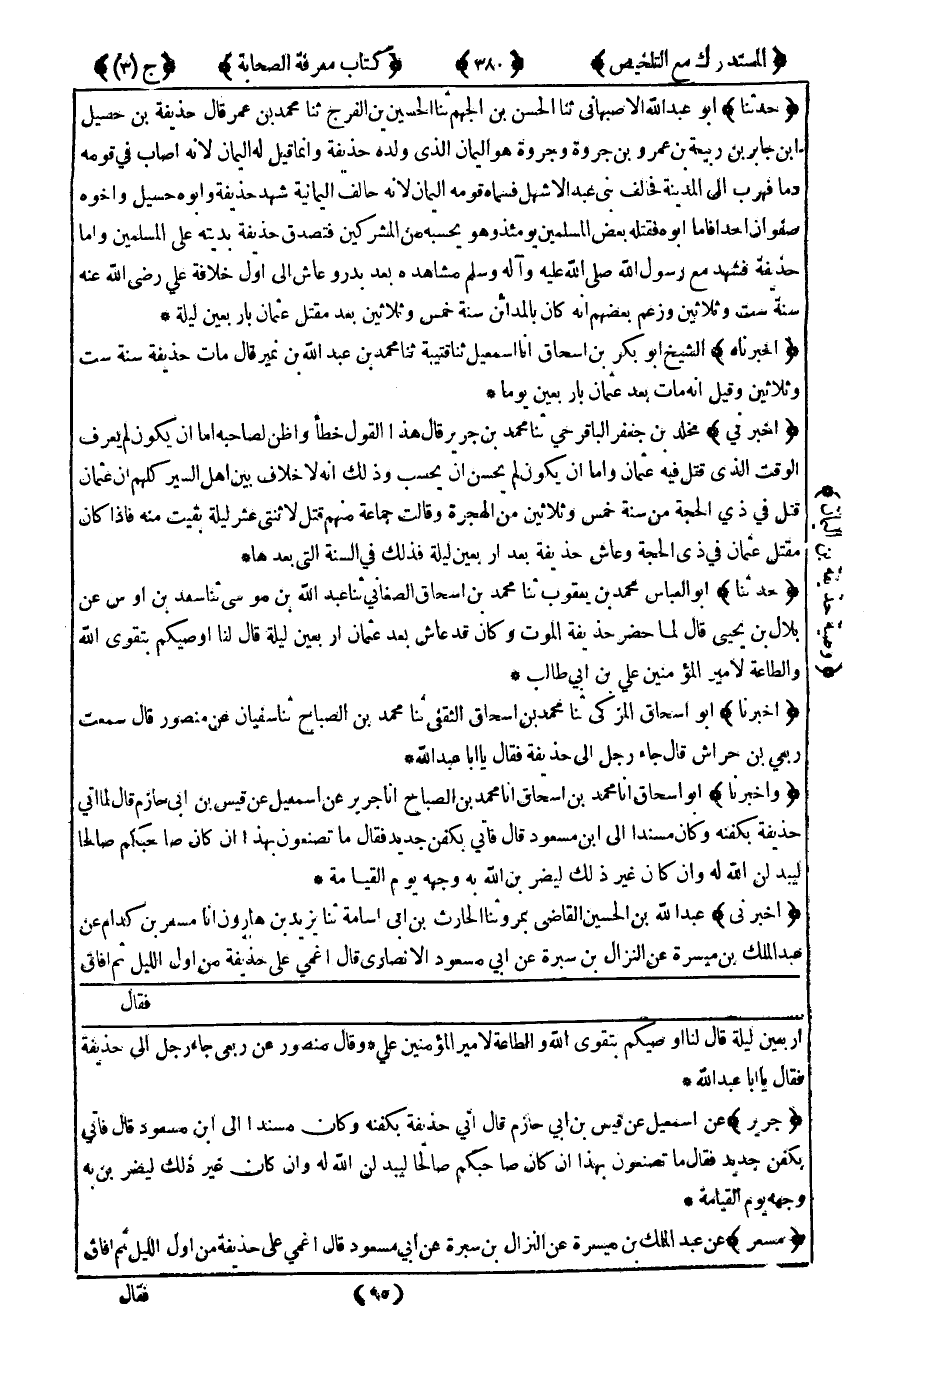 ﴿ المستدرك مع التلخيص ﴾ ﴿ ٣٨٠ ﴾ ﴿ كتاب معرفة الصحابة ﴾ ﴿ ج (٣) ﴾
﴿ حدثنا ﴾ ابو عبدالله الاصبهانى ثنا الحسن بن الجهم ثنا الحسين بن الفرج ثنا محمد بن عمر قال حذيفة بن حصيل
ابن جابر بن ربيعة بن عمرو بن جروة وجروة هو اليمان الذى ولده حذيفة وانما قيل له اليمان لانه اصاب في قومه
دما فهرب الى المدينة فحالف بنى عبد الاشهل فسماه قومه اليمان لانه حالف اليمانية شهد حذيفة وابوه حسيل واخوه
صفوان احدا فاما ابوه فقتله بعض المسلمين يومئذ وهو يحسبه من المشركين فتصدق حذيفة بديته على المسلمين واما
حذيفة فشهد مع رسول الله صلى الله عليه وآله وسلم مشاهده بعد بدر وعاش الى اول خلافة علي رضى الله عنه
سنة ست وثلاثين وزعم بعضهم انه كان بالمدائن سنة خمس وثلاثين بعد مقتل عثمان باربعين ليلة *
﴿ اخبرناه ﴾ الشيخ ابو بكر بن اسحاق انا اسمعيل ثنا قتيبة ثنا محمد بن عبد الله بن نمير قال مات حذيفة سنة ست
وثلاثين وقيل انه مات بعد عثمان باربعين يوما *
﴿ اخبرني ﴾ مخلد بن جعفر الباقرحي ثنا محمد بن جرير قال هذا القول خطأ واظن لصاحبه اما ان يكون لم يعرف
الوقت الذى قتل فيه عثمان واما ان يكون لم يحسن ان يحسب وذلك انه لا خلاف بين اهل السير كلهم ان عثمان
قتل في ذي الحجة من سنة خمس وثلاثين من الهجرة وقالت جماعة منهم قتل لاثنتى عشر ليلة بقيت منه فاذا كان
مقتل عثمان في ذى الحجة وعاش حذيفة بعد اربعين ليلة فذلك في السنة التى بعدها*
﴿ حدثنا ﴾ ابو العباس محمد بن يعقوب ثنا محمد بن اسحاق الصغاني ثنا عبد الله بن موسى ثنا سعد بن اوس عن
بلال بن يحيى قال لما حضر حذيفة الموت وكان قد عاش بعد عثمان اربعين ليلة قال لنا اوصيكم بتقوى الله
والطاعة لامير المؤمنين علي بن ابي طالب *
﴿ اخبرنا ﴾ ابو اسحاق المزكى ثنا محمد بن اسحاق الثقفي ثنا محمد بن الصباح ثنا سفيان عن منصور قال سمعت
ربعي بن حراش قال جاء رجل الى حذيفة فقال يا ابا عبدالله*
﴿ واخبرنا ﴾ ابو اسحاق انا محمد بن اسحاق انا محمد بن الصباح انا جرير عن اسمعيل عن قيس بن ابى حازم قال لما اتي
حذيفة بكفنه وكان مسندا الى ابن مسعود قال فأتي بكفن جديد فقال ما تصنعون بهذا ان كان صاحبكم صالحا
ليبدلن الله له وان كان غير ذلك ليضربن الله به وجهه يوم القيامة *
﴿ اخبرنى ﴾ عبد الله بن الحسين القاضى بمرو ثنا الحارث بن ابى اسامة ثنا يزيد بن هارون انا مسعر بن كدام عن
عبد الملك بن ميسرة عن النزال بن سبرة عن ابي مسعود الانصارى قال اغمي على حذيفة من اول الليل ثم افاق
فقال
﴿ وصية حذيفة بن اليمان ﴾
اربعين ليلة قال لنا اوصيكم بتقوى الله والطاعة لامير المؤمنين علي* وقال منصور عن ربعى جاء رجل الى حذيفة
فقال يا ابا عبدالله *
﴿ جرير ﴾ عن اسمعيل عن قيس بن ابي حازم قال أتي حذيفة بكفنه وكان مسندا الى ابن مسعود قال فأتي
بكفن جديد فقال ما تصنعون بهذا ان كان صاحبكم صالحا ليبدلن الله له وان كان غير ذلك ليضربن به
وجهه يوم القيامة *
﴿ مسعر ﴾ عن عبد الملك بن ميسرة عن النزال بن سبرة عن أبي مسعود قال اغمي على حذيفة من اول الليل ثم افاق
(٩٥) فقال